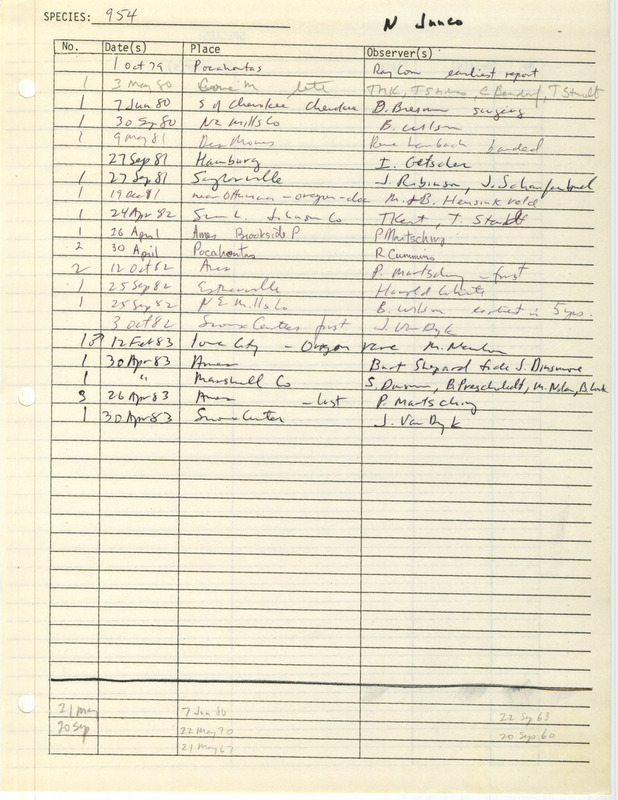 SPECIES: 954 N Junco
No. Date(s) Place Observer(s)
1 Oct 79 Pocahontas Ray Cumm earliest report
1 3 May 80 late THK, T Shires, C Bendorf, T Staudt
1 7 Jun 80 S of Cherokee Cherokee D. Bierman singing
1 30 Sep 80 NE Mills Co B. Wilson
1 9 May 81 Des Moines banded
27 Sep 81 Hamburg I. Getscher
1 27 Sep 81 Saylorville J. Robinson, J. Schaufenbuel
1 19 Dec 81 near Ottumwa - oregon - doc M. & B. Hensinkveld
1 24 Apr 82 Johnson Co T Kent, T. Staudt
1 26 April Ames Brookside P P Martsching
2 30 April Pocahontas R Cummins
2 12 Oct 82 Ames P. Martsching - first
1 25 Sep 82 Estherville Harold White
1 25 Sep 82 NE Mills Co B. Wilson earliest in 5 yrs.
3 Oct 82 Sioux Center first J. Van Dyk
1♂ 12 Feb 83 Iowa City - Oregon race M. Newlon
1 30 Apr 83 Ames Bart Shepard fide J. Dinsmore
1 " Marshall Co S. Dinsmore, B. Proescholdt, M. Nolan, B
3 26 Apr 83 Ames - last P. Martsching
1 30 Apr 83 Sioux Center J. Van Dyk
21 May 7 Jun 80 22 Sep 63
20 Sep 22 May 70 20 Sep 60
21 May 67